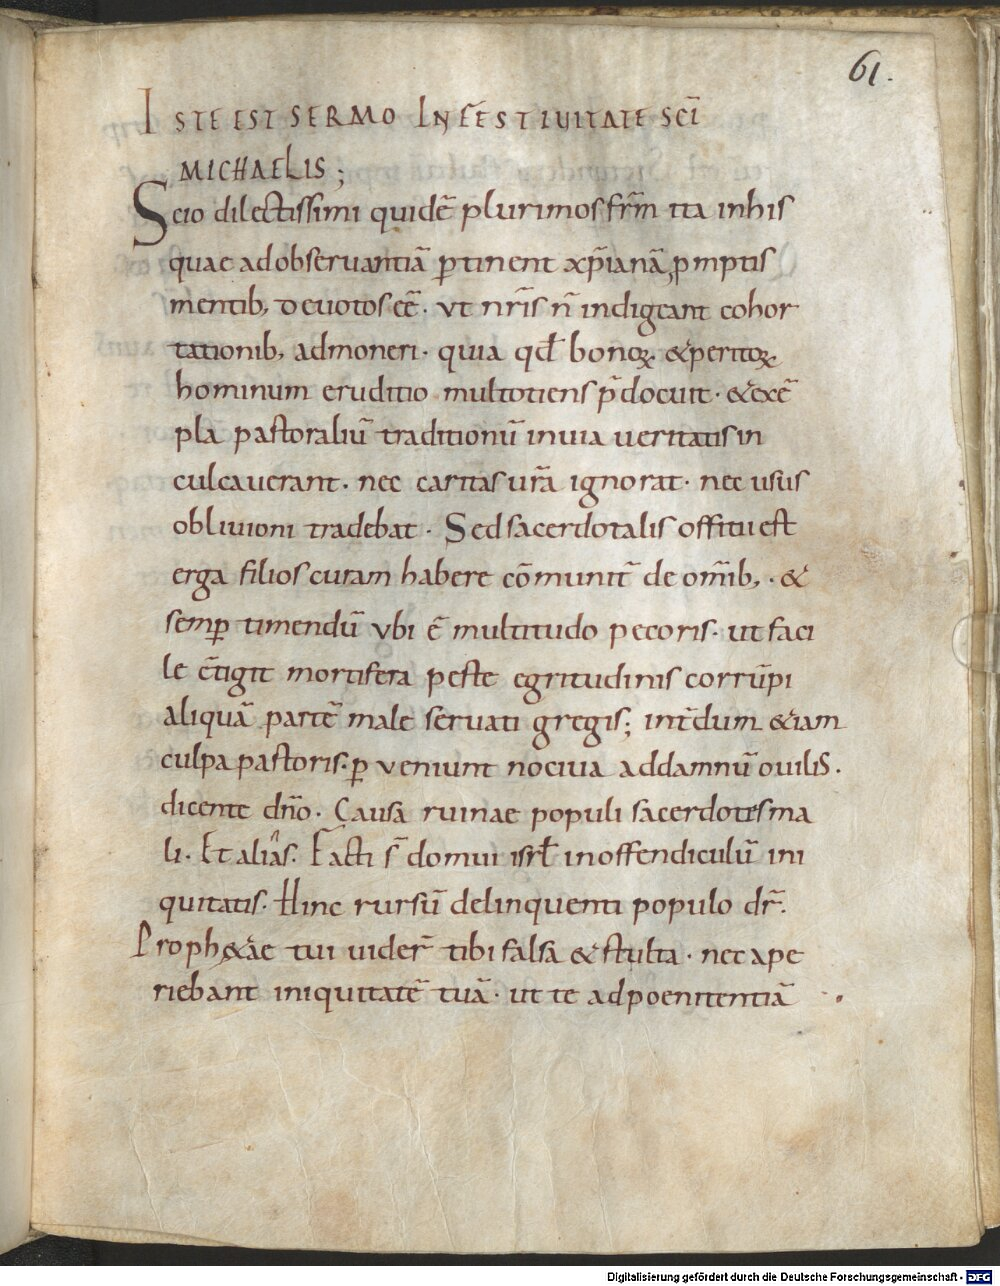 61.
ISTE EST SERMO IN FESTIUITATE SCĪ
MICHAELIS;
Scio dilectissimi quidē plurimos frm̄ ita in his
quae ad observantiā ꝑtinent xp̄ianā, ꝓmptis
mentib; devotos eē̄. vt nr̄is n̄ indigeant cohor
tationib; admoneri. quia qđ bonoꝝ &peritoꝝ
hominum eruditio multotiens p̄docuit. &exē
pla pastoraliū traditionū in uia ueritatis in
culcauerant. nec caritas ur̄a ignorat. nec usus
obliuioni tradebat. Sed sacerdotalis offitii est
erga filios curam habere cōmunit̄ de om̄ib;. &
semꝑ timendū vbi ē multitudo pecoris. ut faci
le c̄tigit mortifera peste egritudinis corrūpi
aliquā partē male servati gregis; int̄dum &iam
culpa pastoris. ꝑveniunt nociua ad damnū ovilis.
dicente dn̄o. Causa ruinae populi sacerdotes ma
li. Et alias. Facti s̄ domui isrł in offendiculū ini
quitatis. Hinc rursū delinquenti populo dr̄.
Proph&ae tui uider̄ tibi falsa & stulta. nec ape
riebant iniquitatē tuā. ut te ad poenitentiā
Digitalisierung gefördert durch die Deutsche Forschungsgemeinschaft - DFG